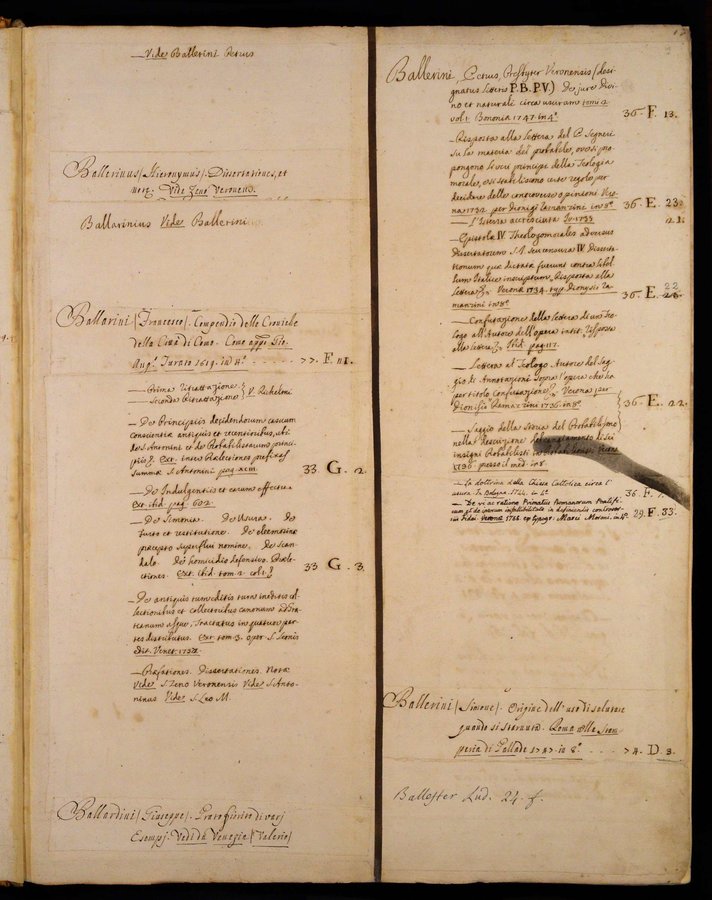 Vide Ballerini Petrus
Ballerinus (Hieronymus). Dissertationes, et
notæ. Vide Zeno Veronens.
Ballarinius Vide Ballerini
Ballarini (Francesco). Compendio delle Croniche
della Città di Como. Como appo Gio.
Aug.º Turato 1619. in 4º - - - - - - 77. F. 11.
— Prima Ritrattazione
— Seconda Ritrattazione } V. Richelmi
— De Principiis decidendorum casuum
conscientiæ antiquis et recentioribus, ubi
de S. Antonini et de Probabilistarum princi-
piis &. Ext. inter Prælectiones præfixas
Summæ S. Antonini pag. xcIII. 33 G. 2.
— De Indulgentiis et earum effectu
Ext. ibid. pag. 602.
— De Simonia. De Usura. De
furto et restitutione. De eleemosinæ
præcepto superflui nomine. De scan-
dalo. De homicidio defensivo. Præle-
ctiones. Ext. ibid. tom. 2. col. 1. 33 G. 3.
— De antiquis tum editis tum ineditis col-
lectionibus et collectoribus canonum ad Gra-
tianum usque, Tractatus in quatuor par-
tes distributus. Ext. tom. 3. oper. S. Leonis
edit. Venet. 1757.
— Præfationes. Dissertationes. Notæ
Vide S. Zeno Veronensis Vide S. Anto-
ninus Vide S. Leo M.
Ballardini (Giuseppe). Prato fiorito di varj
Esempj. Vedi da Venezia (Valerio)
Ballerini, Petrus, Presbyter Veronensis (desi-
gnatus litteris P.B.P.V.) De jure divi-
no et naturali circa usuram tomi 2
vol. 1. Bononiæ 1747. in 4º. 36. F. 13.
— Risposta alla lettera del P. Segneri
su la materia del probabile, ove si pro-
pongono li veri principj della Teologia
morale, e si stabiliscono certe regole per
decidere delle controverse opinioni. Ver-
na 1732. per Dionigi Ramanzini in 8º. 36. E. 23.
— L'istessa accresciuta Iv. 1733 21.
— Epistolæ IV. Theologomorales adversus
dissertatorem S. J. seu censura IV. Disserta-
tionum quæ dictatæ fuerunt contra libel-
lum Italice inscriptum, Risposta alla
lettera &. Veronæ 1734. typ. Dionysii Ra-
manzini in 8º. 36. E. 22
— Confutazione della lettera di un Teo-
logo all'Autore dell'opera intit. Risposta
alla lettera &. Ibid. pag. 117.
— Lettera al Teologo Autore del Sag-
gio di Annotazioni sopra l'opera che ha
per titolo Confutazione &. Verona per
Dionisio Ramanzini 1736. in 8º 36. E. 22.
— Saggio della Storia del Probabilismo
nella descrizione del cangiamento di sei
insigni Probabilisti in
1736. presso il med. in 8
— La dottrina della Chiesa Cattolica circa l'
usura. In Bologna. 1744. in 4º. 36. F.
— De vi ac ratione Primatus Romanorum Pontifi-
cum et de ipsorum infallibilitate in definiendis controver-
siis fidei. Veronæ 1766. ex typogr. Marci Moroni. in 4º. 29. F. 33.
Ballerini (Simone). Origine dell'uso di salutare
quando si sternuta. Roma alla Stam-
peria di Pallade 1747. in 8º. - - - - 74. D. 3.
Ballester Lud. 24. f.